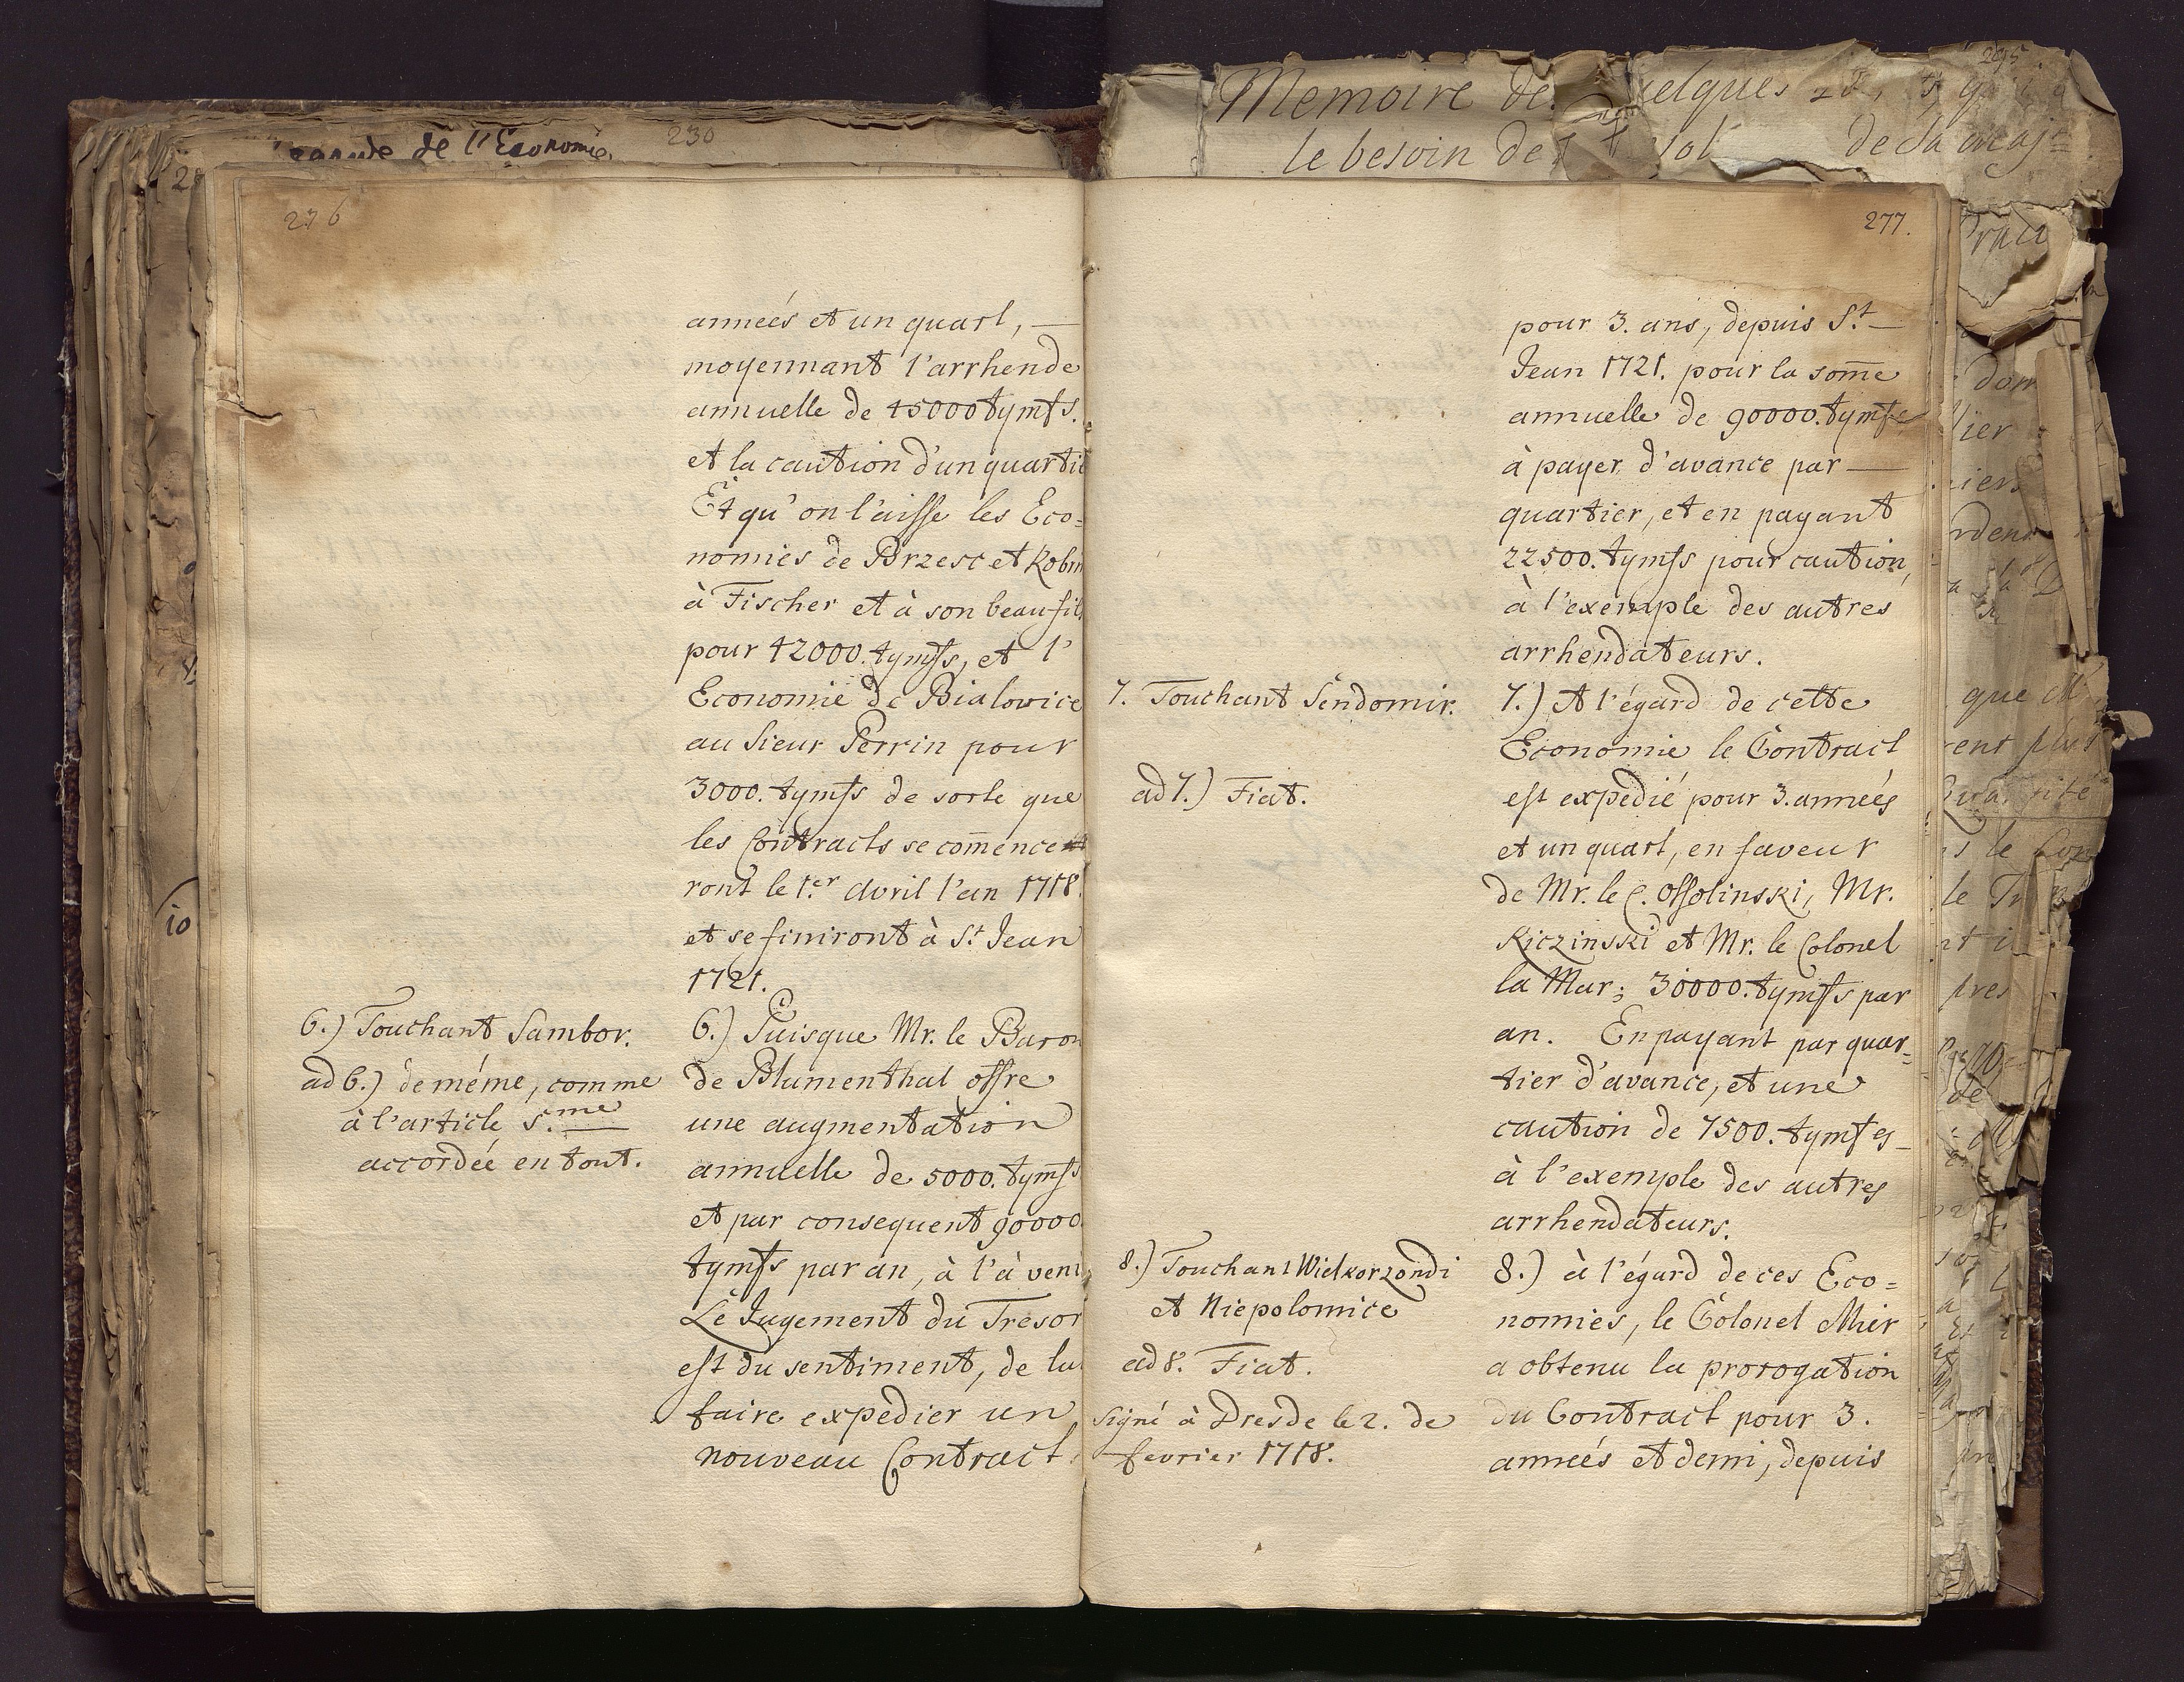 rande de l'Economie
230
276
années et un quart, —
moyennant l'arrhende
annuelle de 45000 tymfs.
et la caution d'un quarti
Et qu'on l'aisse les Eco=
nomies de Brzesc et Kobri
à Fischer et à son beaufils
pour 42000. tymfs, et l'
Economie de Bialowice
au Sieur Perrin pour
3000. tymfs de sorte que
les Contracts se com̄ence
ront le 1.er Avril l'an 1718.
et se finiront à St. Jean
1721.
6.) Touchant Sambor.
ad 6.) de méme, comme
à l'article 5.me —
accordée en tout.
6.) Puisque Mr. le Baron
de Blumenthal offre
une augmentation
annuelle de 5000. tymfs
et par consequent 90000
tymfs par an, à l'à veni
Le Jugement du Tresor
est du sentiment, de lui
faire expedier un
nouveau Contract
295
Memoire de quelques
le besoin de de Sa Maj.té
277.
pour 3. ans, depuis St. —
Jean 1721. pour la som̄e
annuelle de 90000. tymfs
à payer d'avance par —
quartier, et en payant
22500. tymfs pour caution,
à l'exemple des autres
arrhendateurs.
7. Touchant Sendomir.
ad 7.) Fiat.
7.) A l'égard de cette
Economie le Contract
est expedié pour 3. années
et un quart, en faveur
de Mr. le C. Ossolinski, Mr.
Kiczinski et Mr. le Colonel
la Mar; 30000. tymfs par
an. En payant par quar=
tier d'avance, et une
caution de 7500. tymfs
à l'exemple des autres
arrhendateurs.
8.) Touchant Wielkorzondi
et Niepolomice
ad 8. Fiat.
Signé à Dresde le 2. de
fevrier 1718.
8.) à l'égard de ces Eco=
nomies, le Colonel Mier
a obtenu la prorogation
du Contract pour 3.
années et demi, depuis
10